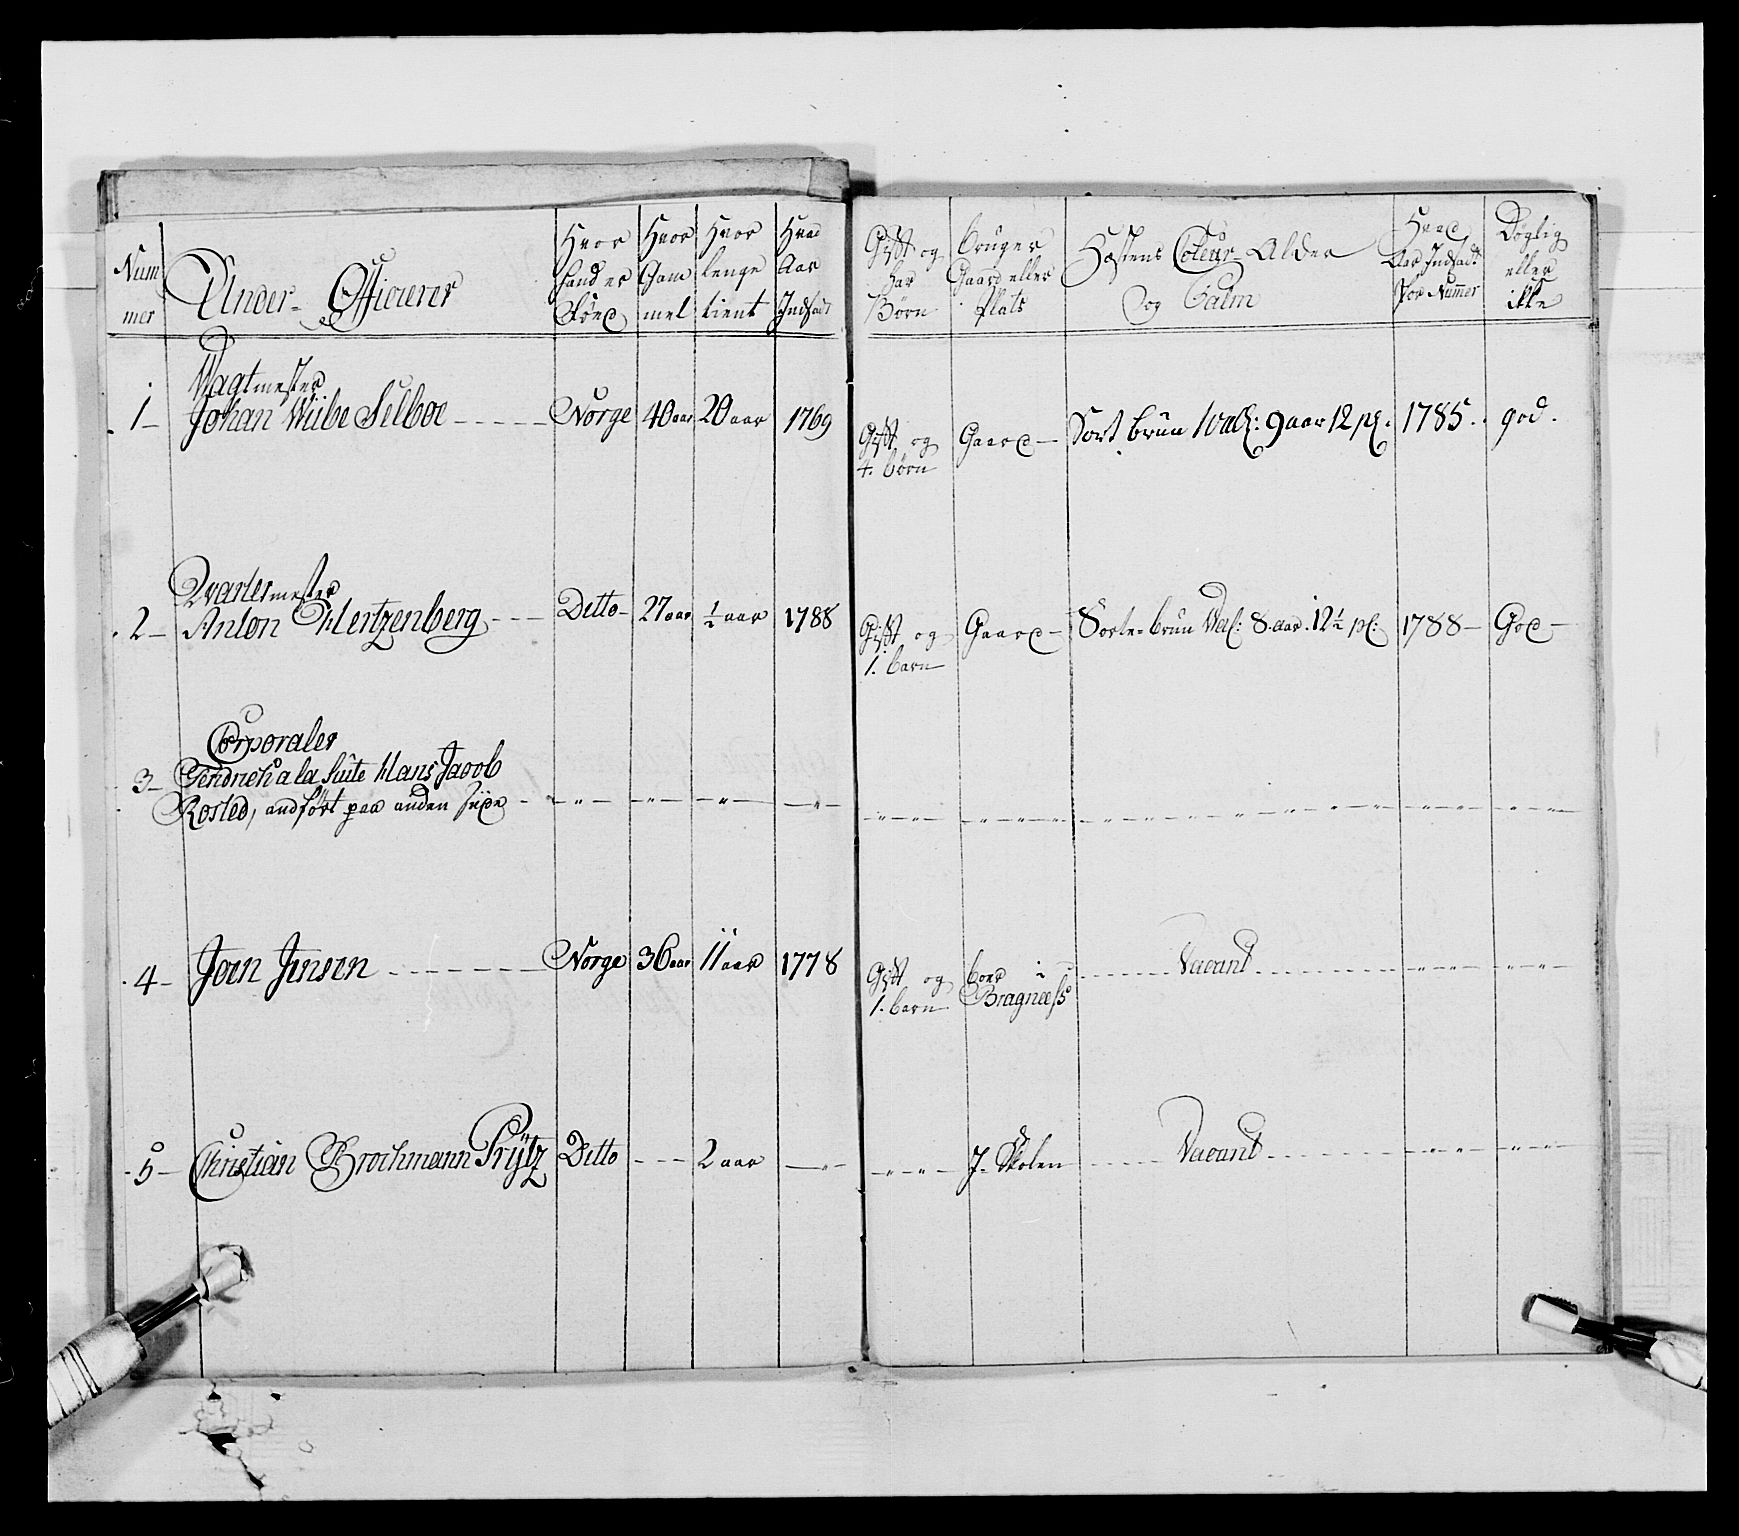 Num
mer
Under-Officierer
Hvor
hand er
Föed
Hvor
Gam
mel
Hvor
lenge
tient
Hvad
Aar
Indsadt
Gift og
har
Börn
bruger
Gaard eller
Plats
Hestens Coleur-Alder
og Palm
Hvad
Aar Indsadt
For Nummer
Dögtig
eller
ikke
Vagtmester
1- Johan Wiibe Selboe ----- Norge 40 aar 20 aar 1769 Gift og Gaard- Sort brun Val: 9 aar 12 pl. 1785. god.
4. börn
Qvartermester
2- Anton Hertzenberg --- Ditto- 27 aar ½ aar 1788 Gift og Gaard- Sorte-brun Val: 8. aar. 12½ pl: 1788- God-
1. barn
Corporaler
3- Fendrich a la Suite Hans Jacob
Rosted, andfört paa anden siide
4- Joen Jensen ------ Norge 36 aar 11 aar 1778 Gift og boer i Vacant
1. barn Bragness
5- Christian Brochmann Prÿtz Ditto --- 2 aar J. Skolen Vacant